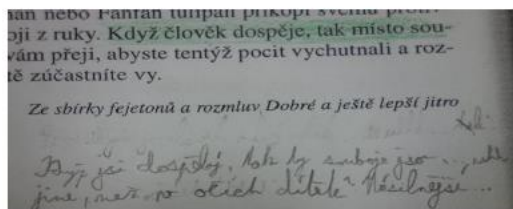 man nebo Fanfán tulipán přikopí svému proti-
oji z ruky. Když člověk dospěje, tak místo sou-
vám přeji, abyste tentýž pocit vychutnali a roz-
tě zúčastníte vy.
Ze sbírky fejetonů a rozmluv Dobré a ještě lepší jitro
jsi dospělý, tak ty souboje jsou
jiné, než po očích dítěte